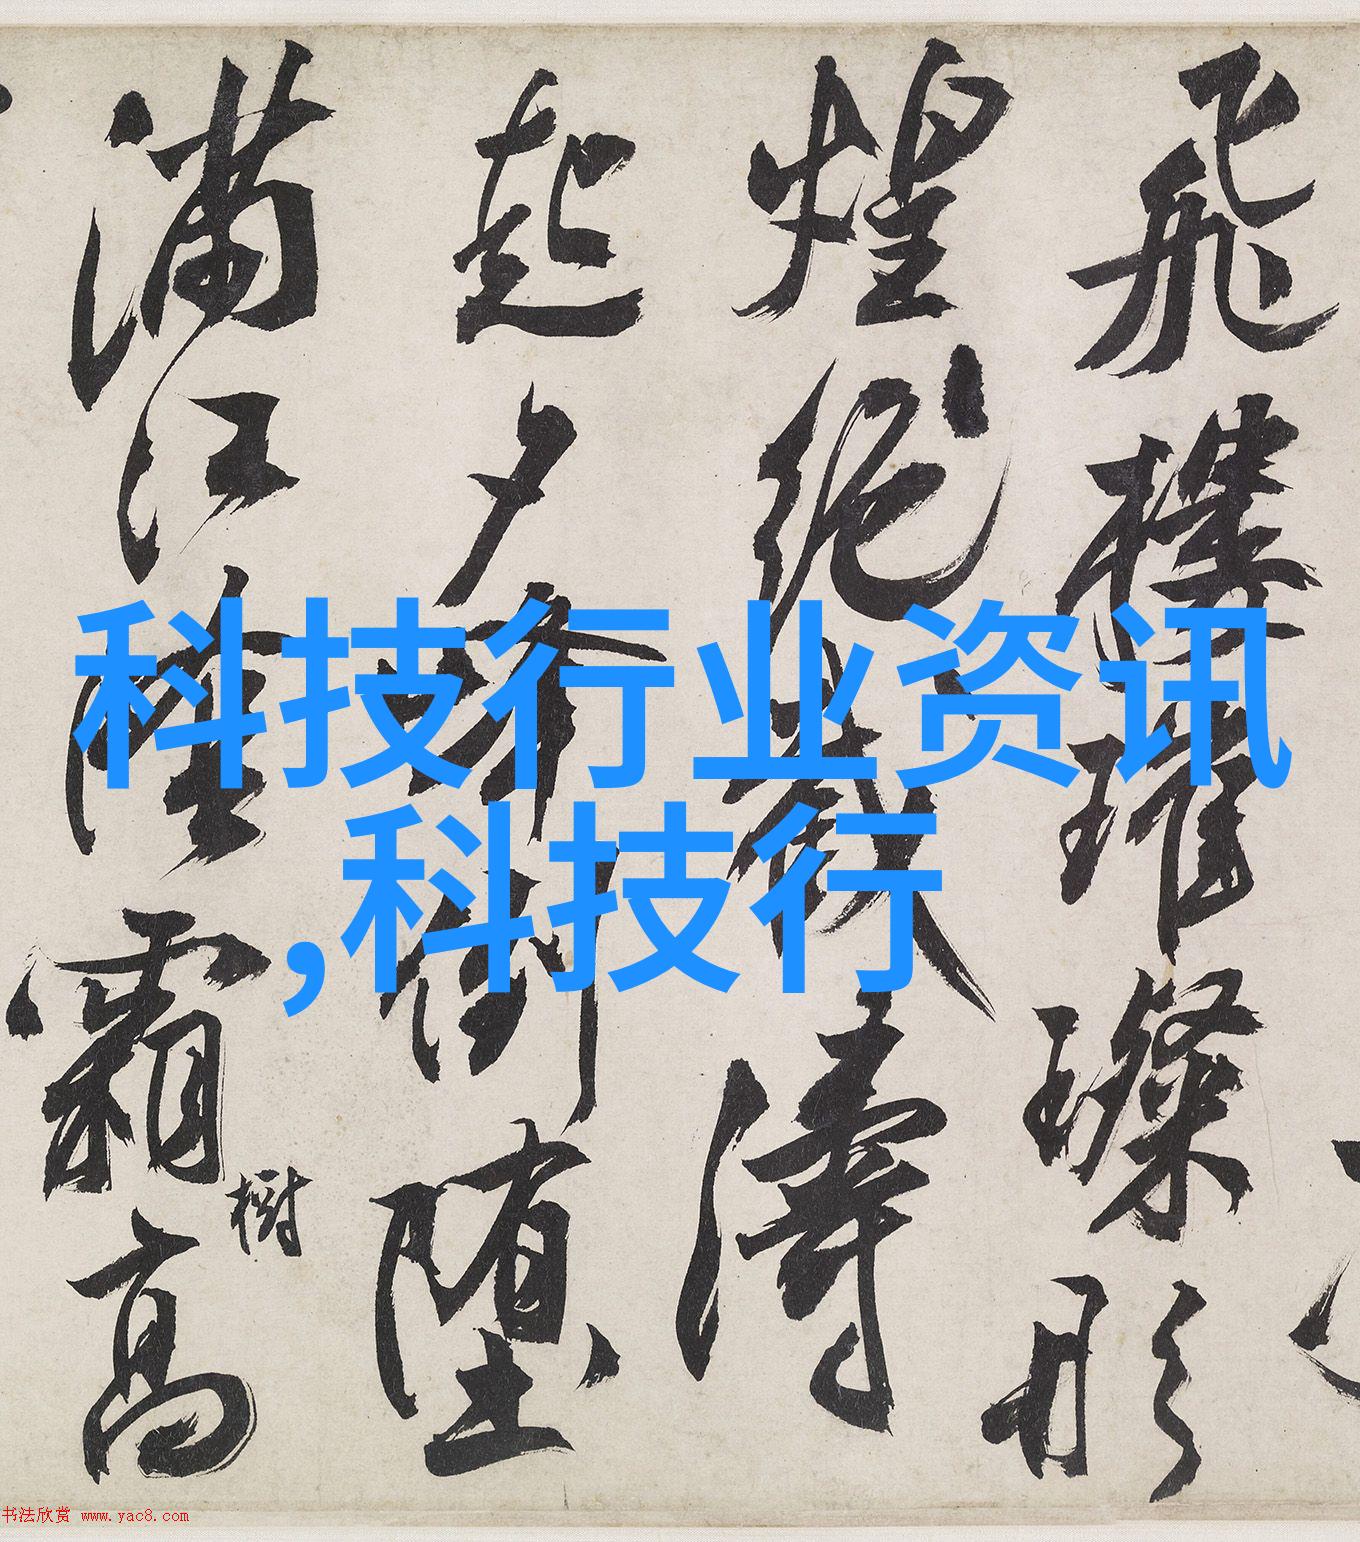 飛樓璀璨形
煌絕濤
起夕墮
滿江霜高
樹
科技行业资讯
,科技行
书法欣赏 www.yac8.com